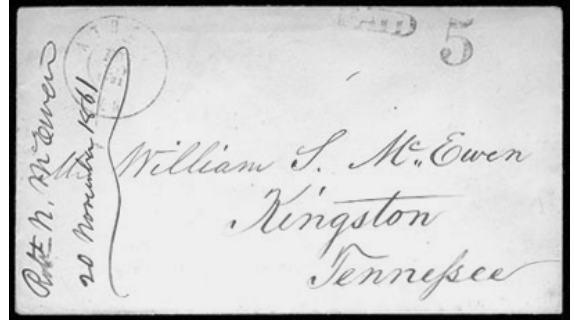 PAID 5
Robt N. McEwen
20 November 1861
William S. McEwen
Kingston
Tenneſsee